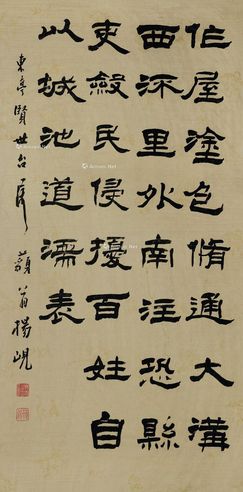 作屋塗色脩通大溝
西流里外南注恐縣
吏斂民侵擾百姓自
以城池道濡表
東亭賢世台屬 藐翁楊峴